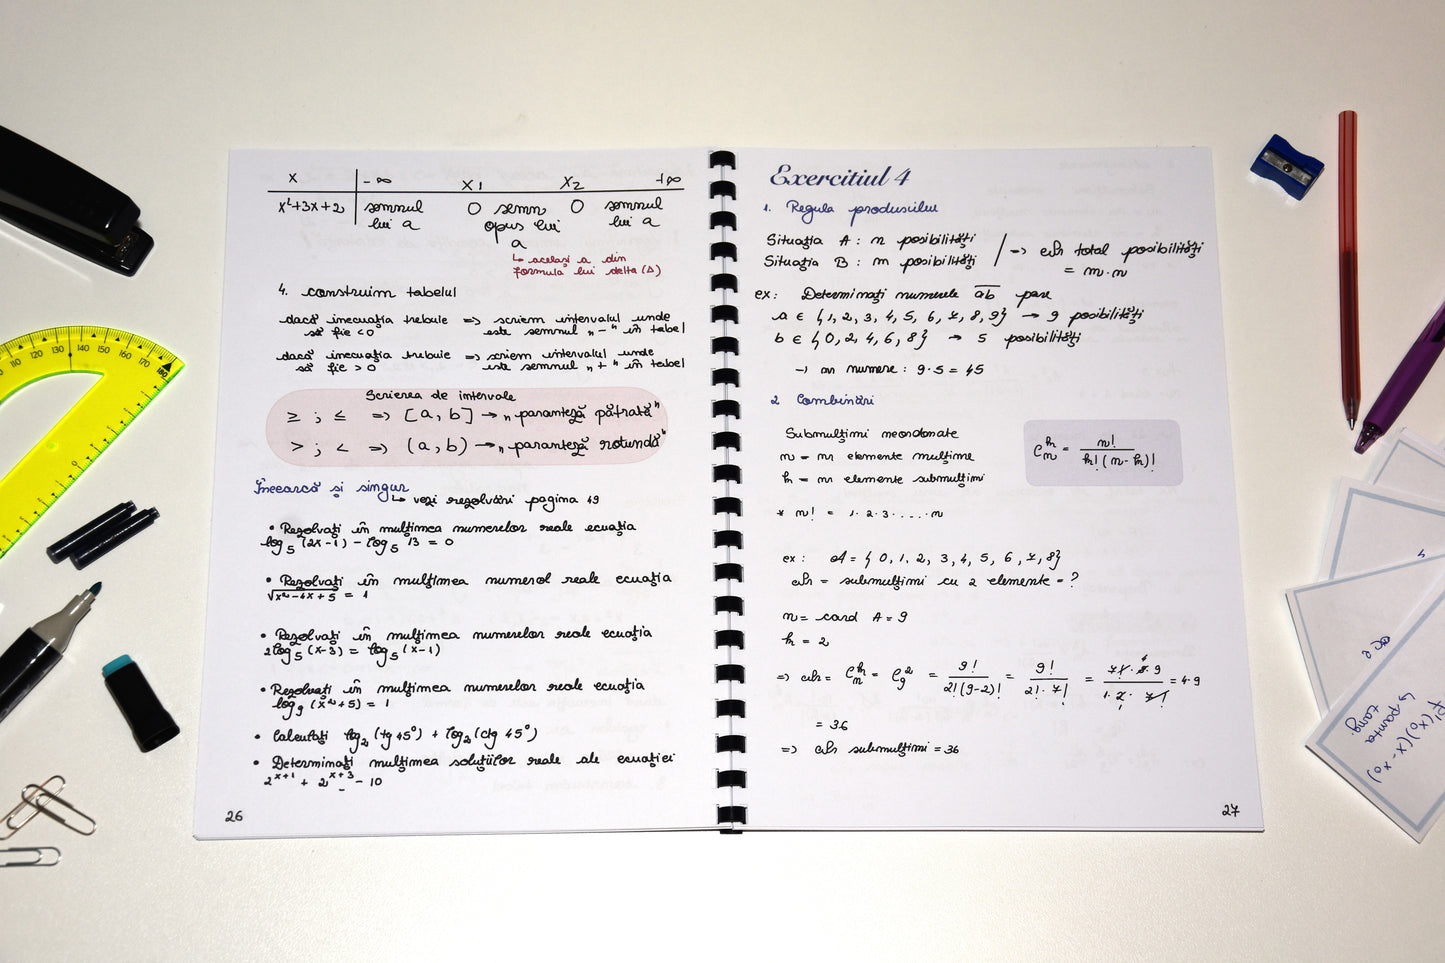 x -∞ x1 x2 +∞
x²+3x+2 semnul lui a 0 semn opus lui a 0 semnul lui a
↳ același a din
formula lui delta (Δ)
4. construim tabelul
dacă inecuația trebuie => scriem intervalul unde
să fie <0 este semnul „-" în tabel
dacă inecuația trebuie => scriem intervalul unde
să fie >0 este semnul „+" în tabel
Scrierea de intervale
≥ ; ≤ => [a, b] → „paranteză pătrată"
> ; < => (a, b) → „paranteză rotundă"
Încearcă și singur
↳ vezi rezolvări pagina 49
• Rezolvați în mulțimea numerelor reale ecuația
log₅ (2x-1) - log₅ 13 = 0
• Rezolvați în mulțimea numerol reale ecuația
√x²-4x+5 = 1
• Rezolvați în mulțimea numerelor reale ecuația
2log₅ (x-3) = log₅ (x-1)
• Rezolvați în mulțimea numerelor reale ecuația
log₉ (x²+5) = 1
• Calculați log₂ (tg 45°) + log₂ (ctg 45°)
• Determinați mulțimea soluțiilor reale ale ecuației
2^x+1 + 2^x+3 - 10
26
Exercitiul 4
1. Regula produsului
Situația A : n posibilități
Situația B : m posibilități
=> nr total posibilități
= m·n
ex: Determinați numerele ab pare
a ∈ {1, 2, 3, 4, 5, 6, 7, 8, 9} → 9 posibilități
b ∈ {0, 2, 4, 6, 8} → 5 posibilități
→ nr numere : 9·5 = 45
2 Combinări
Submulțimi neordonate
n = nr elemente mulțime
k = nr elemente submulțimi
C_n^k = n! / k!(n-k)!
* n! = 1·2·3·....·n
ex: A = {0, 1, 2, 3, 4, 5, 6, 7, 8}
nr = submulțimi cu 2 elemente = ?
n = card A = 9
k = 2
=> nr = C_n^k = C_9^2 = 9! / 2!(9-2)! = 9! / 2!·7! = 7!·8·9 / 1·2·7! = 4·9
= 36
=> nr submulțimi = 36
27
f'(x₀)(x-x₀)
↳ panta
tang.